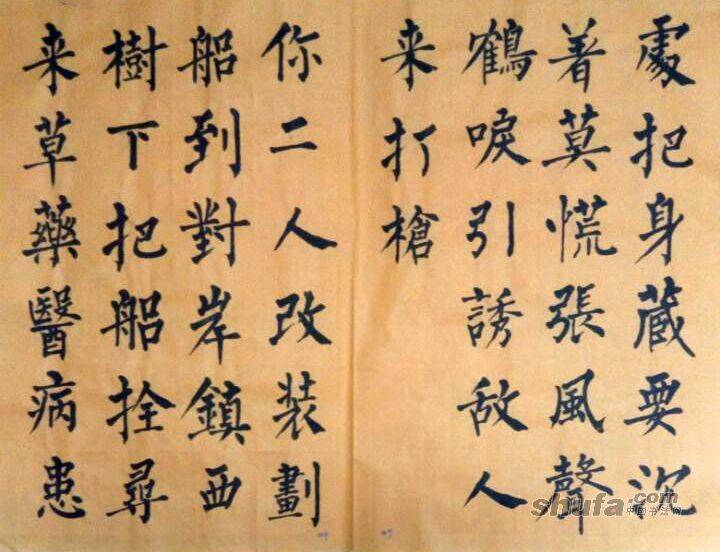 處把身藏要沉
著莫慌張風聲
鶴唳引誘敌人
来打槍
你二人改装劃
船到對岸鎮西
樹下把船拴尋
来草藥醫病患
shufa.com
中国书法网